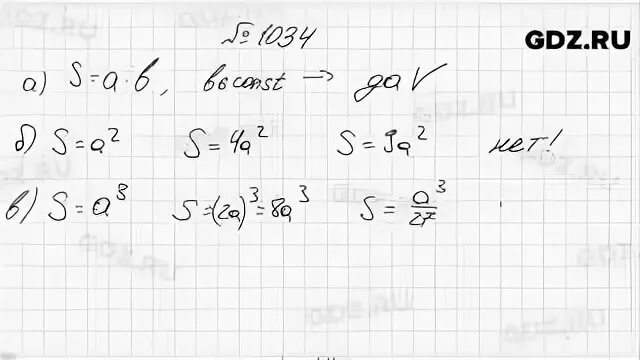 № 1034
GDZ.RU
а) S = a · b, b const → да V
б) S = a² S = 4a² S = 9a² нет!
в) S = a³ S = (2a)³ = 8a³ S = a³/27